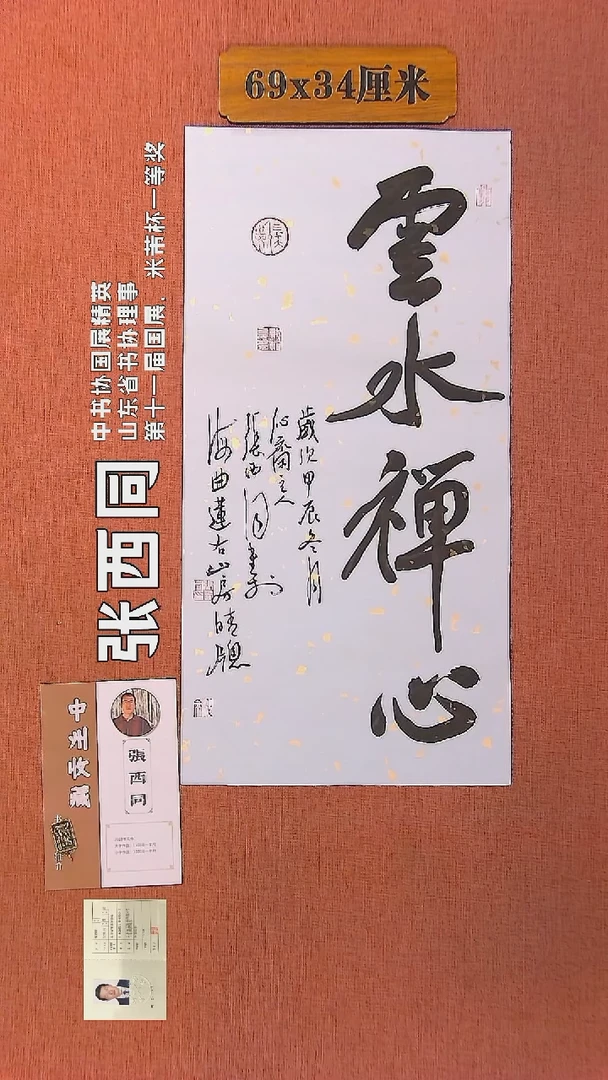 69x34厘米
雲水禅心
歲次甲辰冬月
沁齋主人
張西同書於
海曲蓮古山房晴窗
中书协国展精英
山东省书协理事
第十一届国展、米芾杯一等奖
张西同
張西同